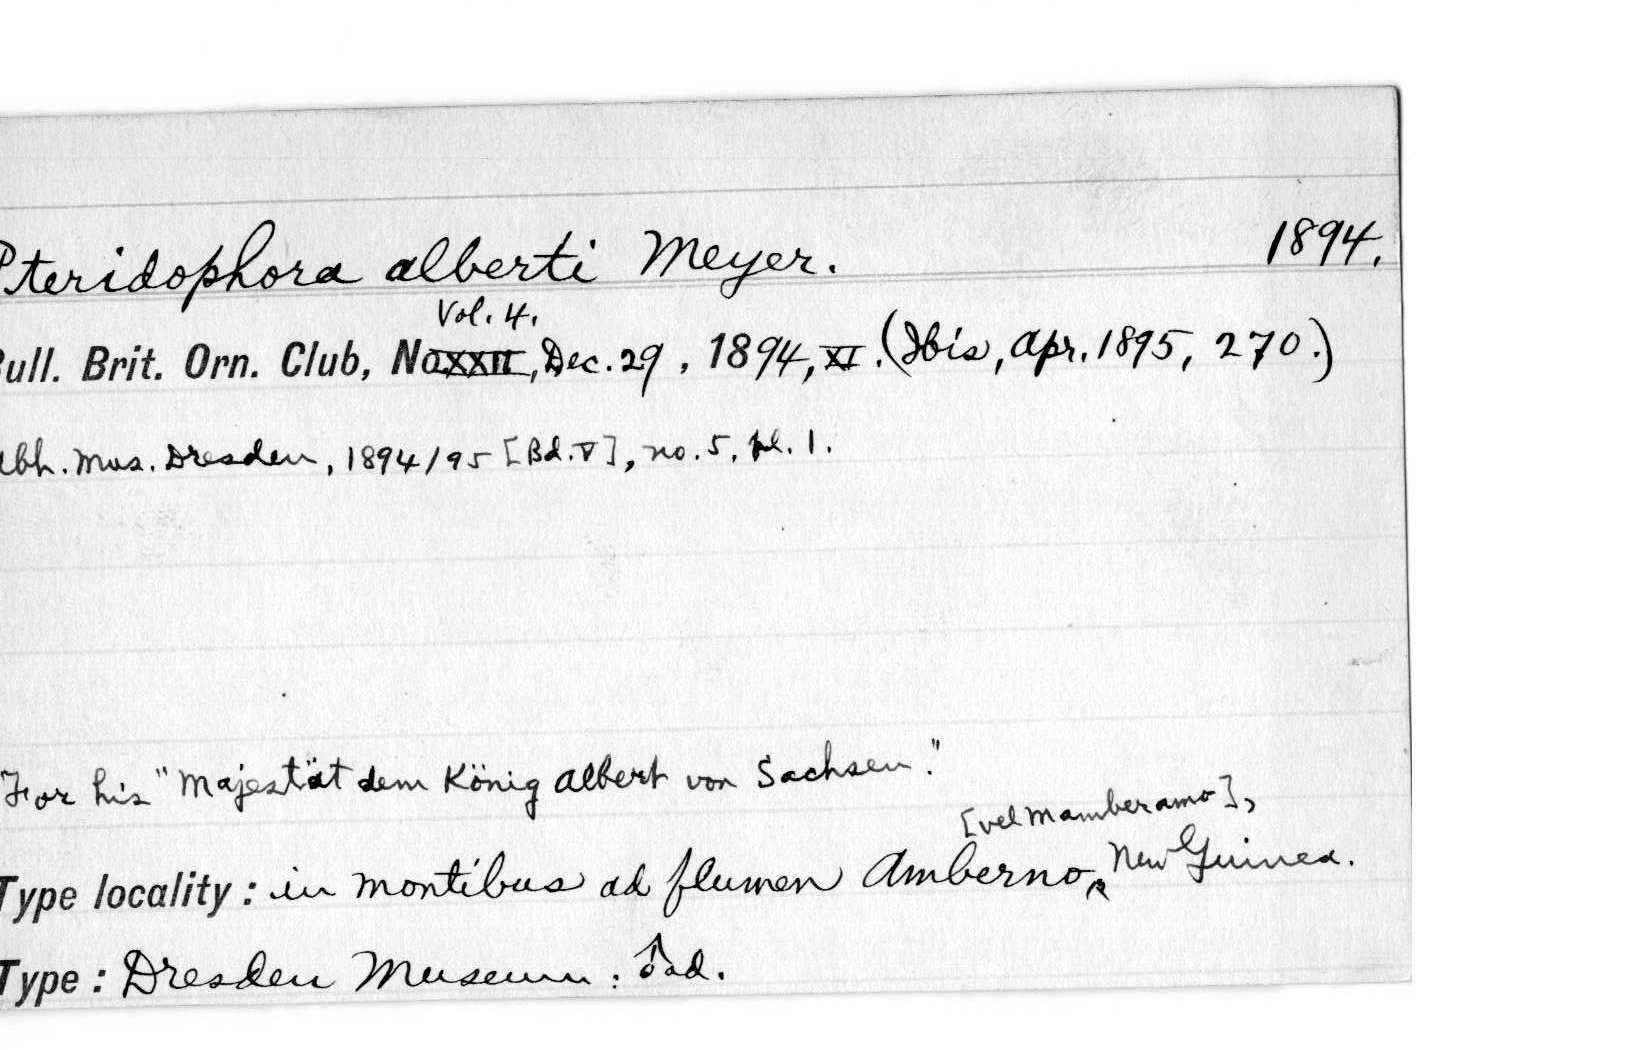 Pteridophora alberti Meyer. 1894.
Vol. 4.
Bull. Brit. Orn. Club, No XXII, Dec. 29, 1894, XI. (Ibis, Apr. 1895, 270.)
Abh. Mus. Dresden, 1894/95 [Bd. V], no. 5, pl. 1.
For his "Majestät dem König Albert von Sachsen."
[vel Mamberamo],
Type locality: in montibus ad flumen Amberno, New Guinea.
Type: Dresden Museum: ♂ad.